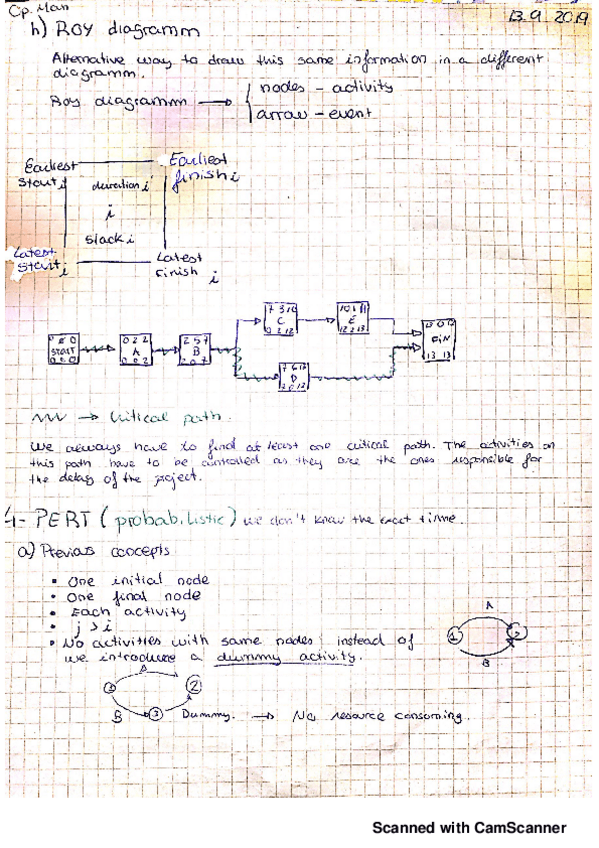 Op. Man
13.9.2019
h) ROY diagramm
Alternative way to draw this same information in a different
diagramm.
Roy diagramm → nodes - activity
arrow - event
Earliest start i
Earliest finish i
duration i
i
slack i
Latest start i
Latest finish i
START
0 2 2
A
0 0 2
2 5 7
B
2 0 7
7 3 10
C
E
D
FIN
13 13
→ Critical path.
We always have to find at least one critical path. The activities on
this path have to be controlled as they are the ones responsible for
the delay of the project.
4- PERT (probabilistic) we don't know the exact time.
a) Previous concepts
• One initial node
• One final node
• Each activity
• j > i
• No activities with same nodes instead of
we introduce a dummy activity.
A
1
2
B
A
1
2
B
3
Dummy. → No resource consoming.
Scanned with CamScanner